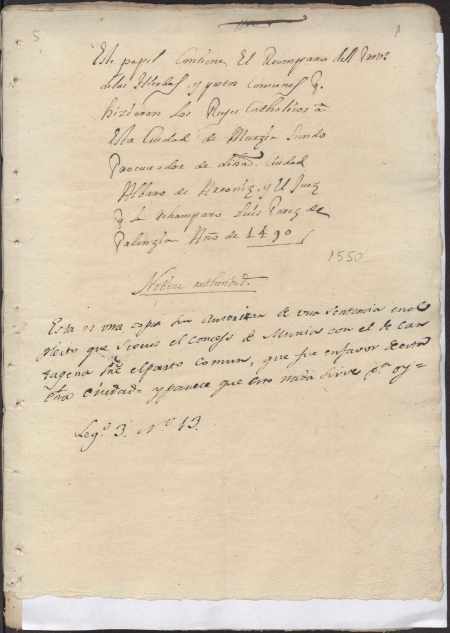 5
1
Este papel Contiene El Reamparo del
delas Yerbas, y pastos comunes q.
hizieron los Reyes Catholicos a
Esta Ciudad de Murzia siendo
Procurador de dicha Ciudad
Albaro de y El Juez
q. le Rehamparo Luis Perez de
Palenzia Año de 1490
1550
No tiene authoridad.
Esta es una copia sin autorizar de una sentencia en el
Pleito que siguio el concejo de Murcia con el de Car
tagena sre. el pasto comun, que fue en favor de esta
dha Ciudad y parece que esto nada sirve pa. oy =
Legº. 3. Nº 13.